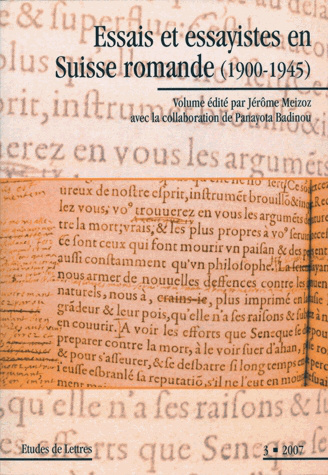 Essais et essayistes en
Suisse romande (1900-1945)
Volume édité par Jérôme Meizoz
avec la collaboration de Panayota Badinou
erez en vous les argumēt
ureux de nostre esprit, instrumēt brouillō & in
lez vous, vo⁹ trouuerez en vous les argumēs de
tre la mort, vrais, & les plus propres à vo⁹ serui
ce sont ceux qui font mourir vn paisan & des p
aussi constamment qu'vn philosophe. La
nous armer de nouuelles deffences contre les
naturels, nous a, crains-ie, plus imprimé en
grādeur & leur pois, qu'elle n'a ses raisons & sub
en couurir. A voir les efforts que Seneque se d
preparer contre la mort, à le voir suer d'ahan, p
& pour s'asseurer, & se desbatre si long temps e
i'eusse esbranlé sa reputation, s'il ne l'eut en mou
qu'elle n'a ses raisons &
efforts que Seneque se
Etudes de Lettres
3 ▪ 2007